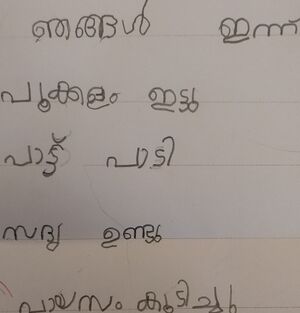 ഞങ്ങൾ ഇന്ന്
പൂക്കളം ഇട്ടു
പാട്ട് പാടി
സദ്യ ഉണ്ടു
പായസം കുടിച്ചു